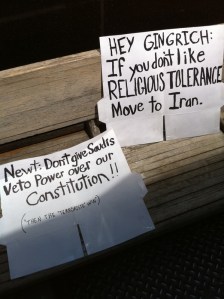 HEY GINGRICH:
If you don't like
RELIGIOUS TOLERANCE
Move to Iran.
Newt: Don't give Saudis
Veto Power over our
Constitution!!
(THEN THE TERRORISTS WIN)